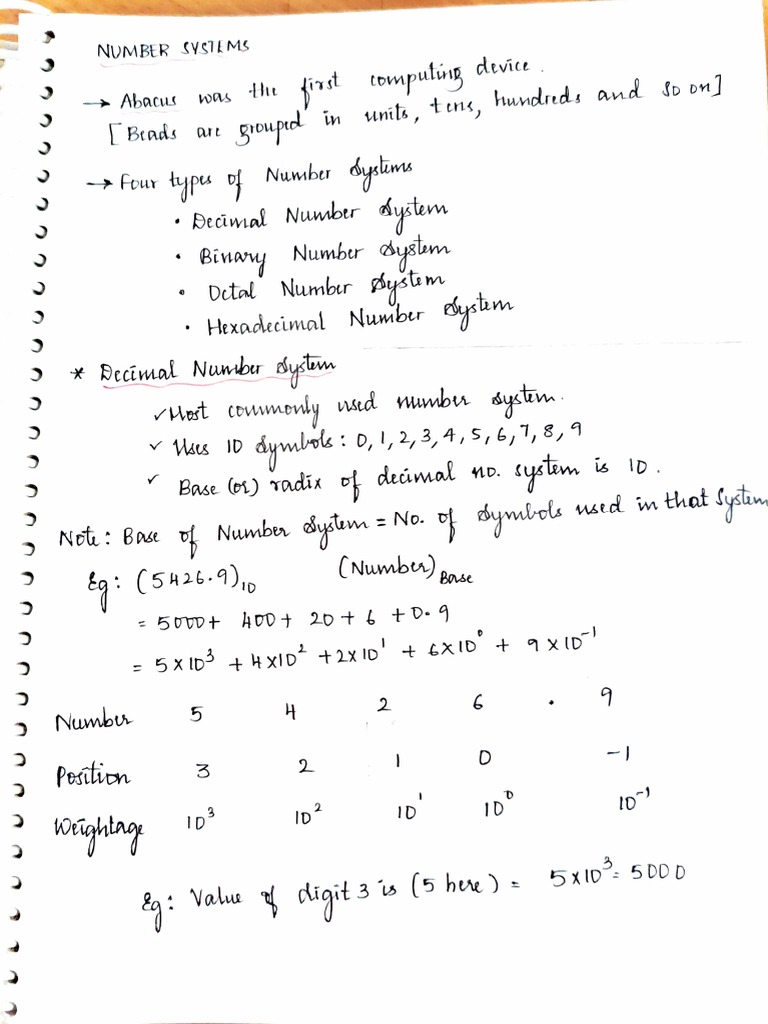 NUMBER SYSTEMS
→ Abacus was the first computing device.
[Beads are grouped in units, tens, hundreds and so on]
→ Four types of Number Systems
• Decimal Number System
• Binary Number System
• Octal Number System
• Hexadecimal Number System
* Decimal Number System
✓ Most commonly used number system.
✓ Uses 10 Symbols: 0, 1, 2, 3, 4, 5, 6, 7, 8, 9
✓ Base (or) radix of decimal no. system is 10.
Note: Base of Number System = No. of Symbols used in that System
Eg: (5426.9)₁₀ (Number)Base
= 5000 + 400 + 20 + 6 + 0.9
= 5×10³ + 4×10² + 2×10¹ + 6×10⁰ + 9×10⁻¹
Number 5 4 2 6 . 9
Position 3 2 1 0 -1
Weightage 10³ 10² 10¹ 10⁰ 10⁻¹
Eg: Value of digit 3 is (5 here) = 5×10³ = 5000